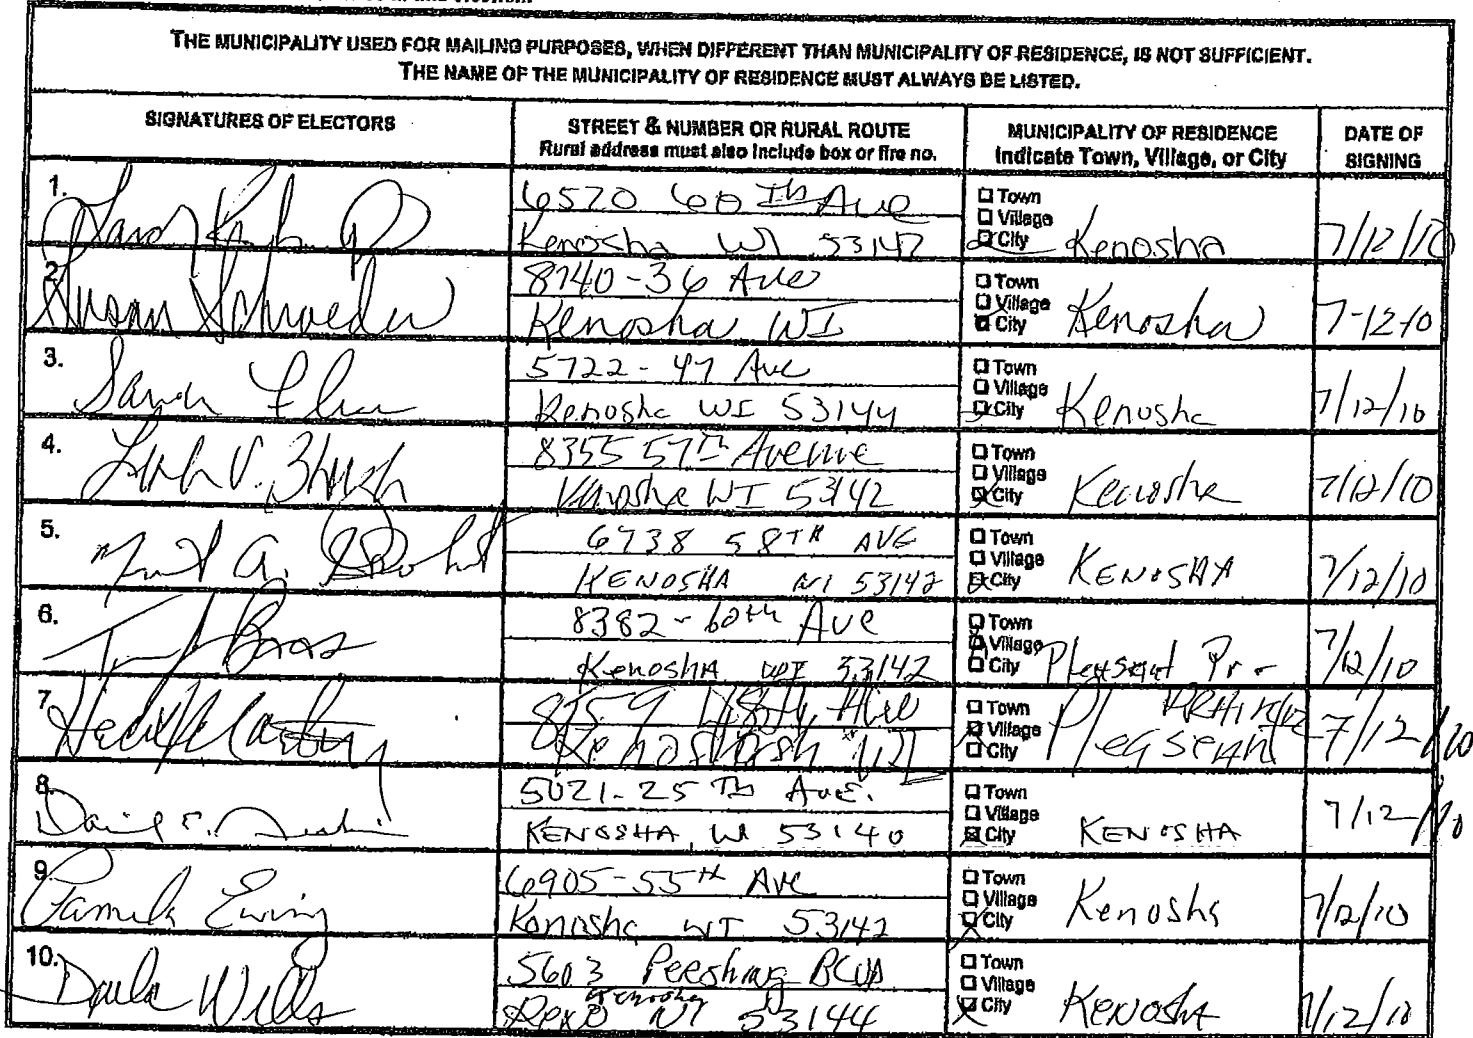 THE MUNICIPALITY USED FOR MAILING PURPOSES, WHEN DIFFERENT THAN MUNICIPALITY OF RESIDENCE, IS NOT SUFFICIENT.
THE NAME OF THE MUNICIPALITY OF RESIDENCE MUST ALWAYS BE LISTED.
SIGNATURES OF ELECTORS
STREET & NUMBER OR RURAL ROUTE
Rural address must also include box or fire no.
MUNICIPALITY OF RESIDENCE
Indicate Town, Village, or City
DATE OF
SIGNING
1.
6520 60Th Ave
Kenosha WI 53142
Town
Village
City Kenosha
7/12/10
2.
Susan Schroeder
8740-36 Ave
Kenosha WI
Town
Village
City Kenosha
7-12-10
3.
5722-47 Ave
Kenosha WI 53144
Town
Village
City Kenosha
7/12/10
4.
8355 57th Avenue
Kenosha WI 53142
Town
Village
City Kenosha
7/12/10
5.
A.
6738 58TH AVE
KENOSHA WI 53142
Town
Village
City KENOSHA
7/12/10
6.
8382-60th Ave
Kenosha WI 53142
Town
Village
City Pleasant Pr-
7/12/10
7
Ave
WI
Town
Village
City Pleasant
7/12/10
8.
5021-25Th Ave.
KENOSHA, WI 53140
Town
Village
City KENOSHA
7/12/10
9.
Pamela Ewing
6905-55th Ave
Kenosha WI 53142
Town
Village
City Kenosha
7/12/10
10.
Wells
5603 Pershing BLVD
Kenosha WI 53144
Town
Village
City Kenosha
7/12/10